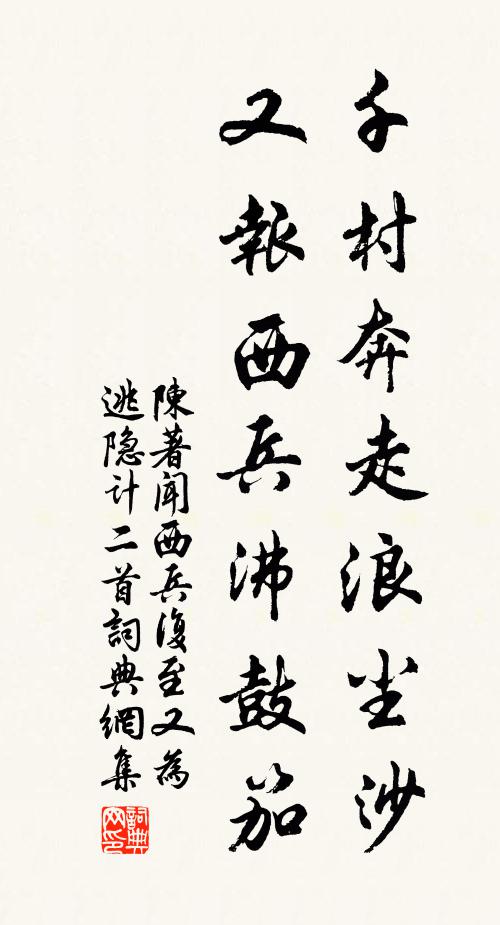 千村奔走浪尘沙
又報西兵沸鼓笳
陳著聞西兵復至又為
逃隐计二首詞典網集
詞典
网印